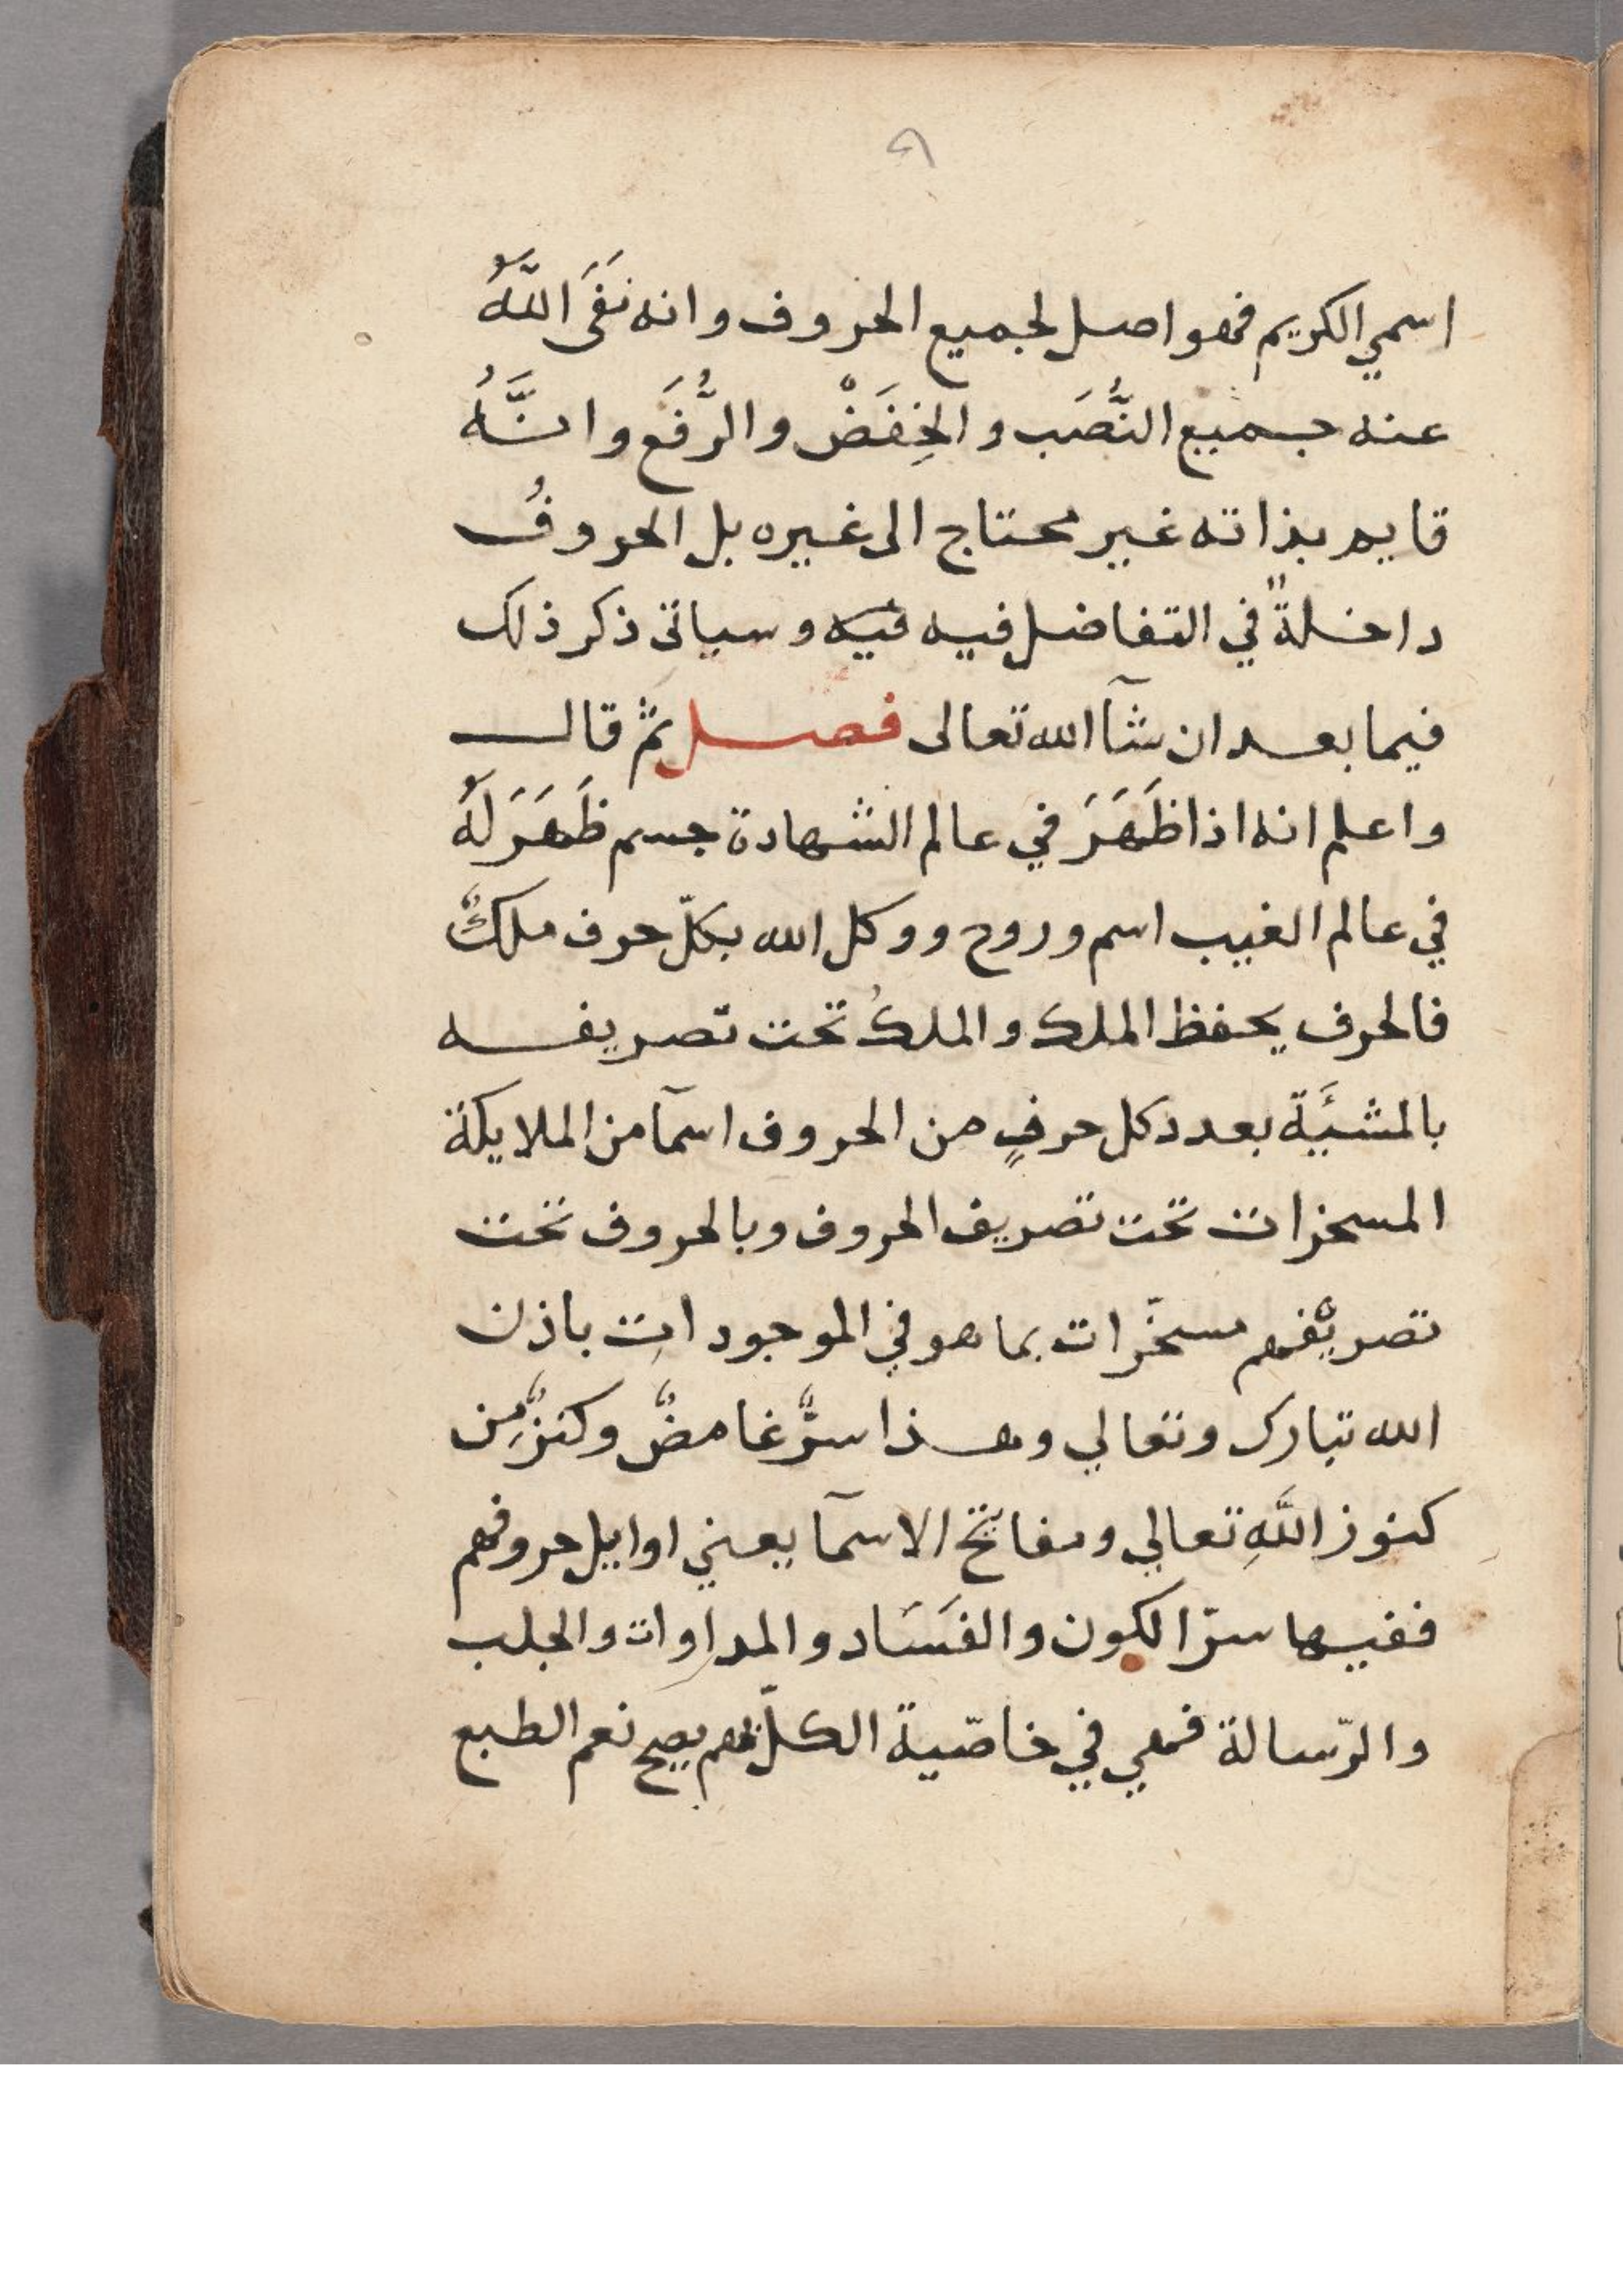 ٩
اسمي الكريم فهو اصل لجميع الحروف وانه نَفَى اللَّهُ
عنه جميع النُّصَب والخِفَضْ والرُّفَع وانَّهُ
قايم بذاته غير محتاج الى غيره بل الحروفُ
داخلةً في التفاضل فيه فيه وسياتى ذكر ذلك
فيما بعد ان شآ الله تعالى فصل ثمّ قال
واعلم انه اذا ظَهَرَ في عالم الشهادة جسم ظَهَرَ لَهُ
في عالم الغيب اسم وروح ووكل الله بكلّ حرف ملكٌ
فالحرف يحفظ الملك والملكُ تحت تصريفه
بالمشيَة بعدد كل حرفٍ من الحروف اسمآ من الملايكة
المسخرات تحت تصريف الحروف وبالحروف تحت
تصريْفهم مسخّرات بما هو في الموجوداتِ باذن
الله تبارك وتعالي وهذا سرٌّ غامضٌ وكنزٌ مِن
كنوز اللَّهِ تعالي ومفاتح الاسمآ يعني اوايل حروفهم
ففيها سرّ الكون والفَسَاد والمداوات والجلب
والرّسالة فهي في خاصّية الكلّ يصح نعم الطبع